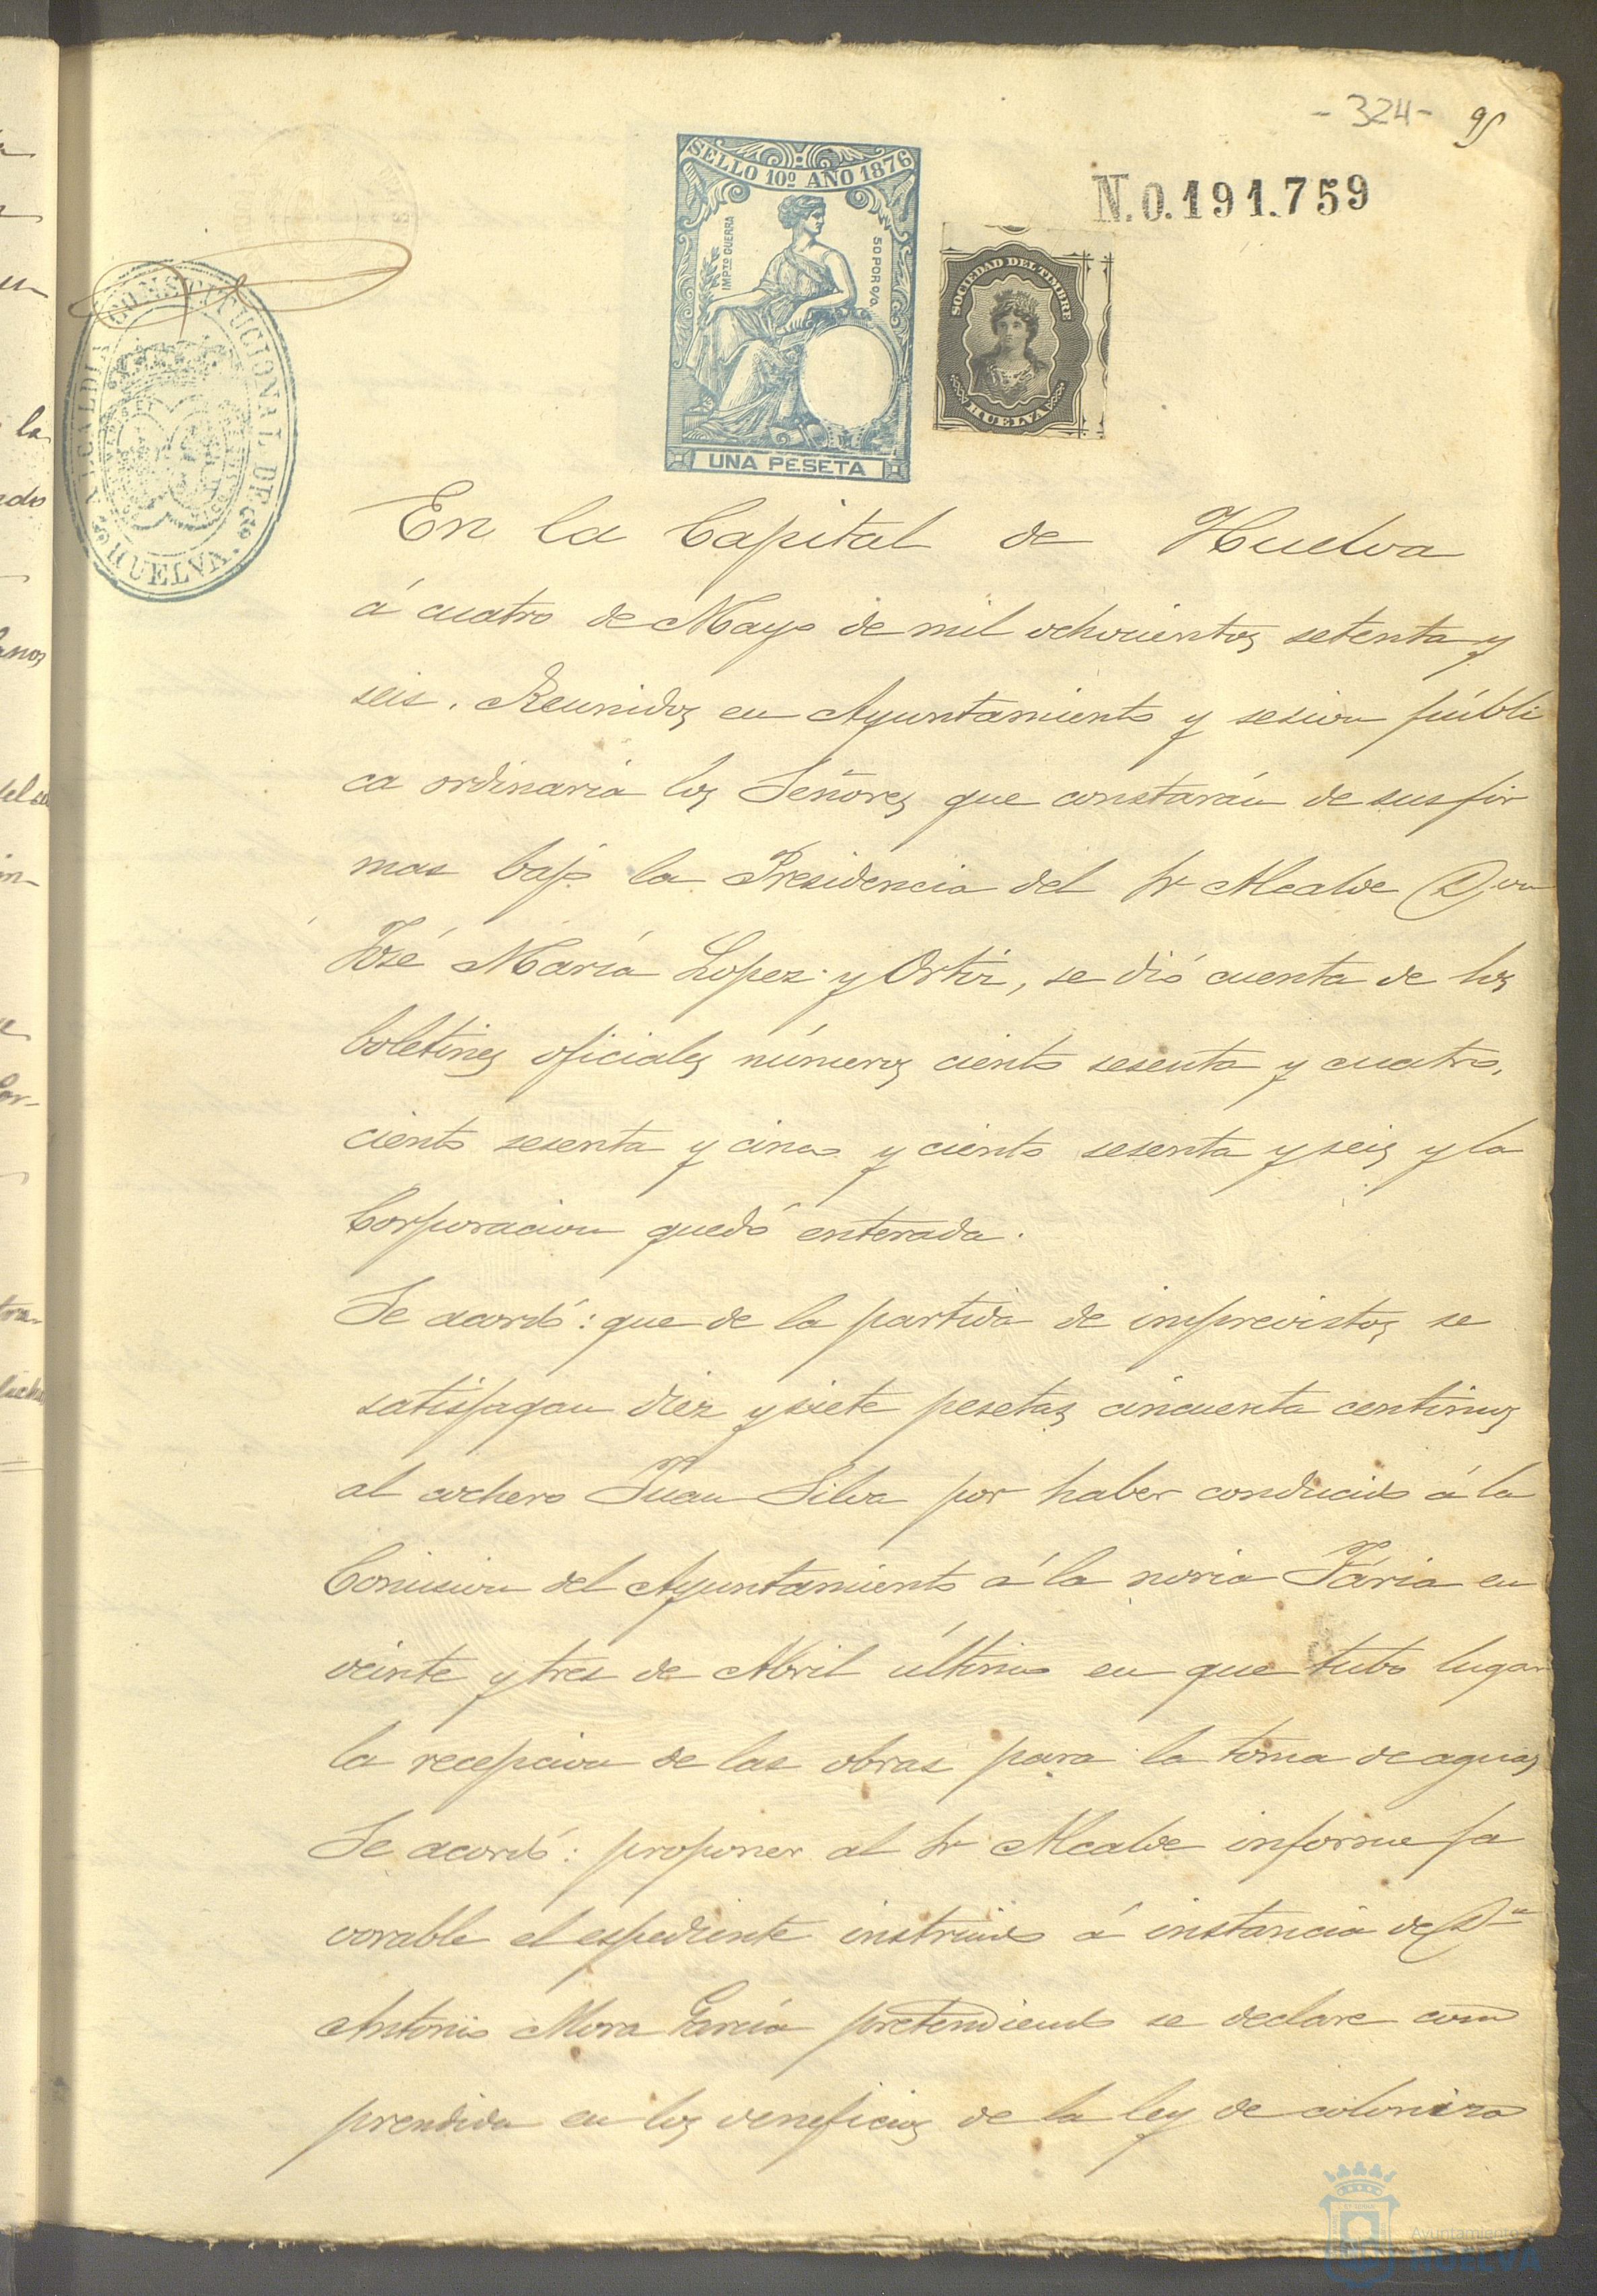 - 324 -
95
N.0.191.759
SELLO 10º AÑO 1876
IMPTO GUERRA
50 POR 0/0.
UNA PESETA
SOCIEDAD DEL TIMBRE
HUELVA
ALCALDIA CONSTITUCIONAL DE
HUELVA.
En la Capital de Huelva
á cuatro de Mayo de mil ochocientos setenta y
seis. Reunidos en Ayuntamiento y sesion públi
ca ordinaria los Señores que constarán de sus fir
mas bajo la Presidencia del Sr Alcalde Don
José María Lopez y Ortiz, se dió cuenta de los
boletines oficiales números ciento sesenta y cuatro,
ciento sesenta y cinco y ciento sesenta y seis y la
Corporacion quedó enterada.
Se acordó: que de la partida de imprevistos se
satisfagan diez y siete pesetas cincuenta centimos
al cochero Juan Silva por haber conducido á la
Comision del Ayuntamiento á la noria Fária en
veinte y tres de Abril último en que tubo lugar
la recepcion de las obras para la toma de aguas
Se acordó: proponer al Sr Alcalde informe fa
vorable el espediente instruido á instancia de Dn
Antonio Mora García pretendiendo se declare com
prendida en los veneficios de la ley de coloniza
Ayuntamiento
HUELVA